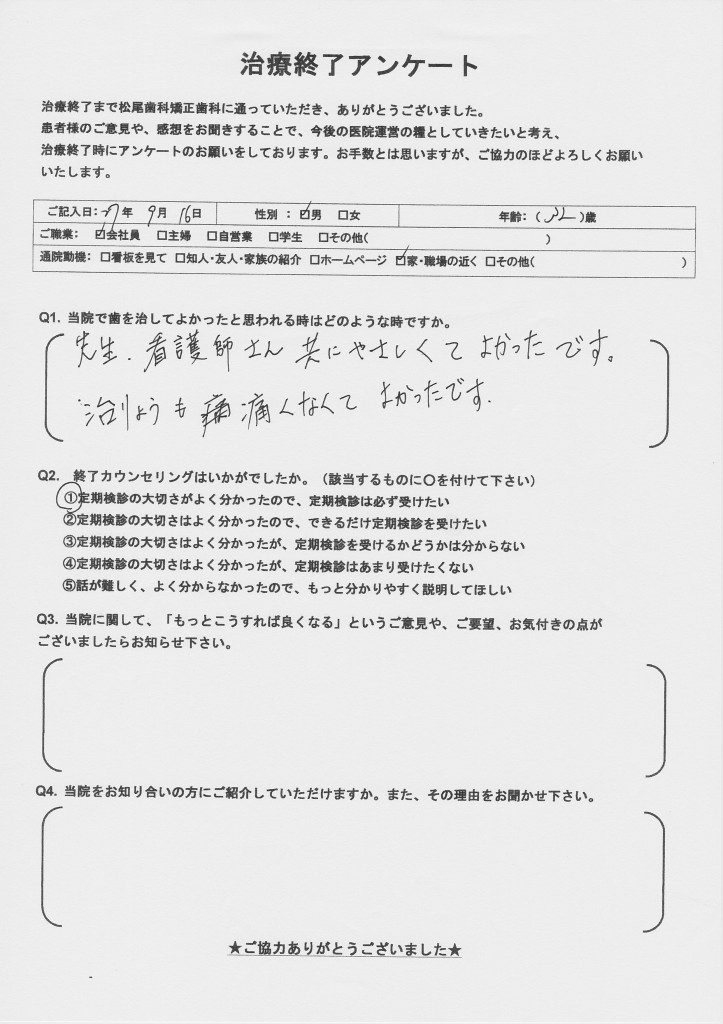 治療終了アンケート
治療終了まで松尾歯科矯正歯科に通っていただき、ありがとうございました。
患者様のご意見や、感想をお聞きすることで、今後の医院運営の糧としていきたいと考え、
治療終了時にアンケートのお願いをしております。お手数とは思いますが、ご協力のほどよろしくお願い
いたします。
ご記入日：27年 9月 16日 性別 ： ☑男 □女 年齢：（ ）歳
ご職業： ☑会社員 □主婦 □自営業 □学生 □その他( )
通院動機： □看板を見て □知人・友人・家族の紹介 □ホームページ ☑家・職場の近く □その他( )
Q1. 当院で歯を治してよかったと思われる時はどのような時ですか。
先生、看護師さん 共にやさしくて よかったです。
治りょうも 痛くなくて よかったです.
Q2. 終了カウンセリングはいかがでしたか。（該当するものに○を付けて下さい）
①定期検診の大切さがよく分かったので、定期検診は必ず受けたい
②定期検診の大切さはよく分かったので、できるだけ定期検診を受けたい
③定期検診の大切さはよく分かったが、定期検診を受けるかどうかは分からない
④定期検診の大切さはよく分かったが、定期検診はあまり受けたくない
⑤話が難しく、よく分からなかったので、もっと分かりやすく説明してほしい
Q3. 当院に関して、「もっとこうすれば良くなる」というご意見や、ご要望、お気付きの点が
ございましたらお知らせ下さい。
Q4. 当院をお知り合いの方にご紹介していただけますか。また、その理由をお聞かせ下さい。
★ご協力ありがとうございました★